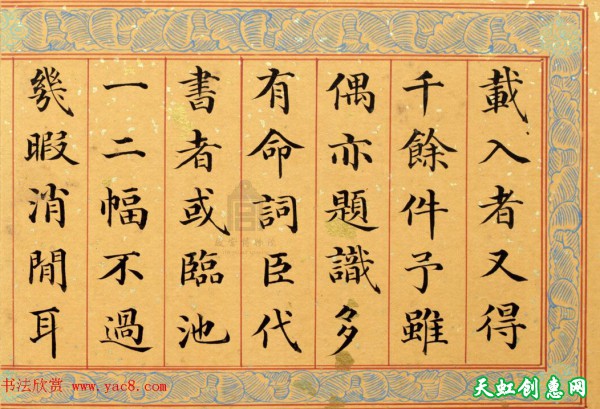 載入者又得
千餘件予雖
偶亦題識多
有命詞臣代
書者或臨池
一二幅不過
幾暇消閒耳
书法欣赏 www.yac8.com
天虹创惠网